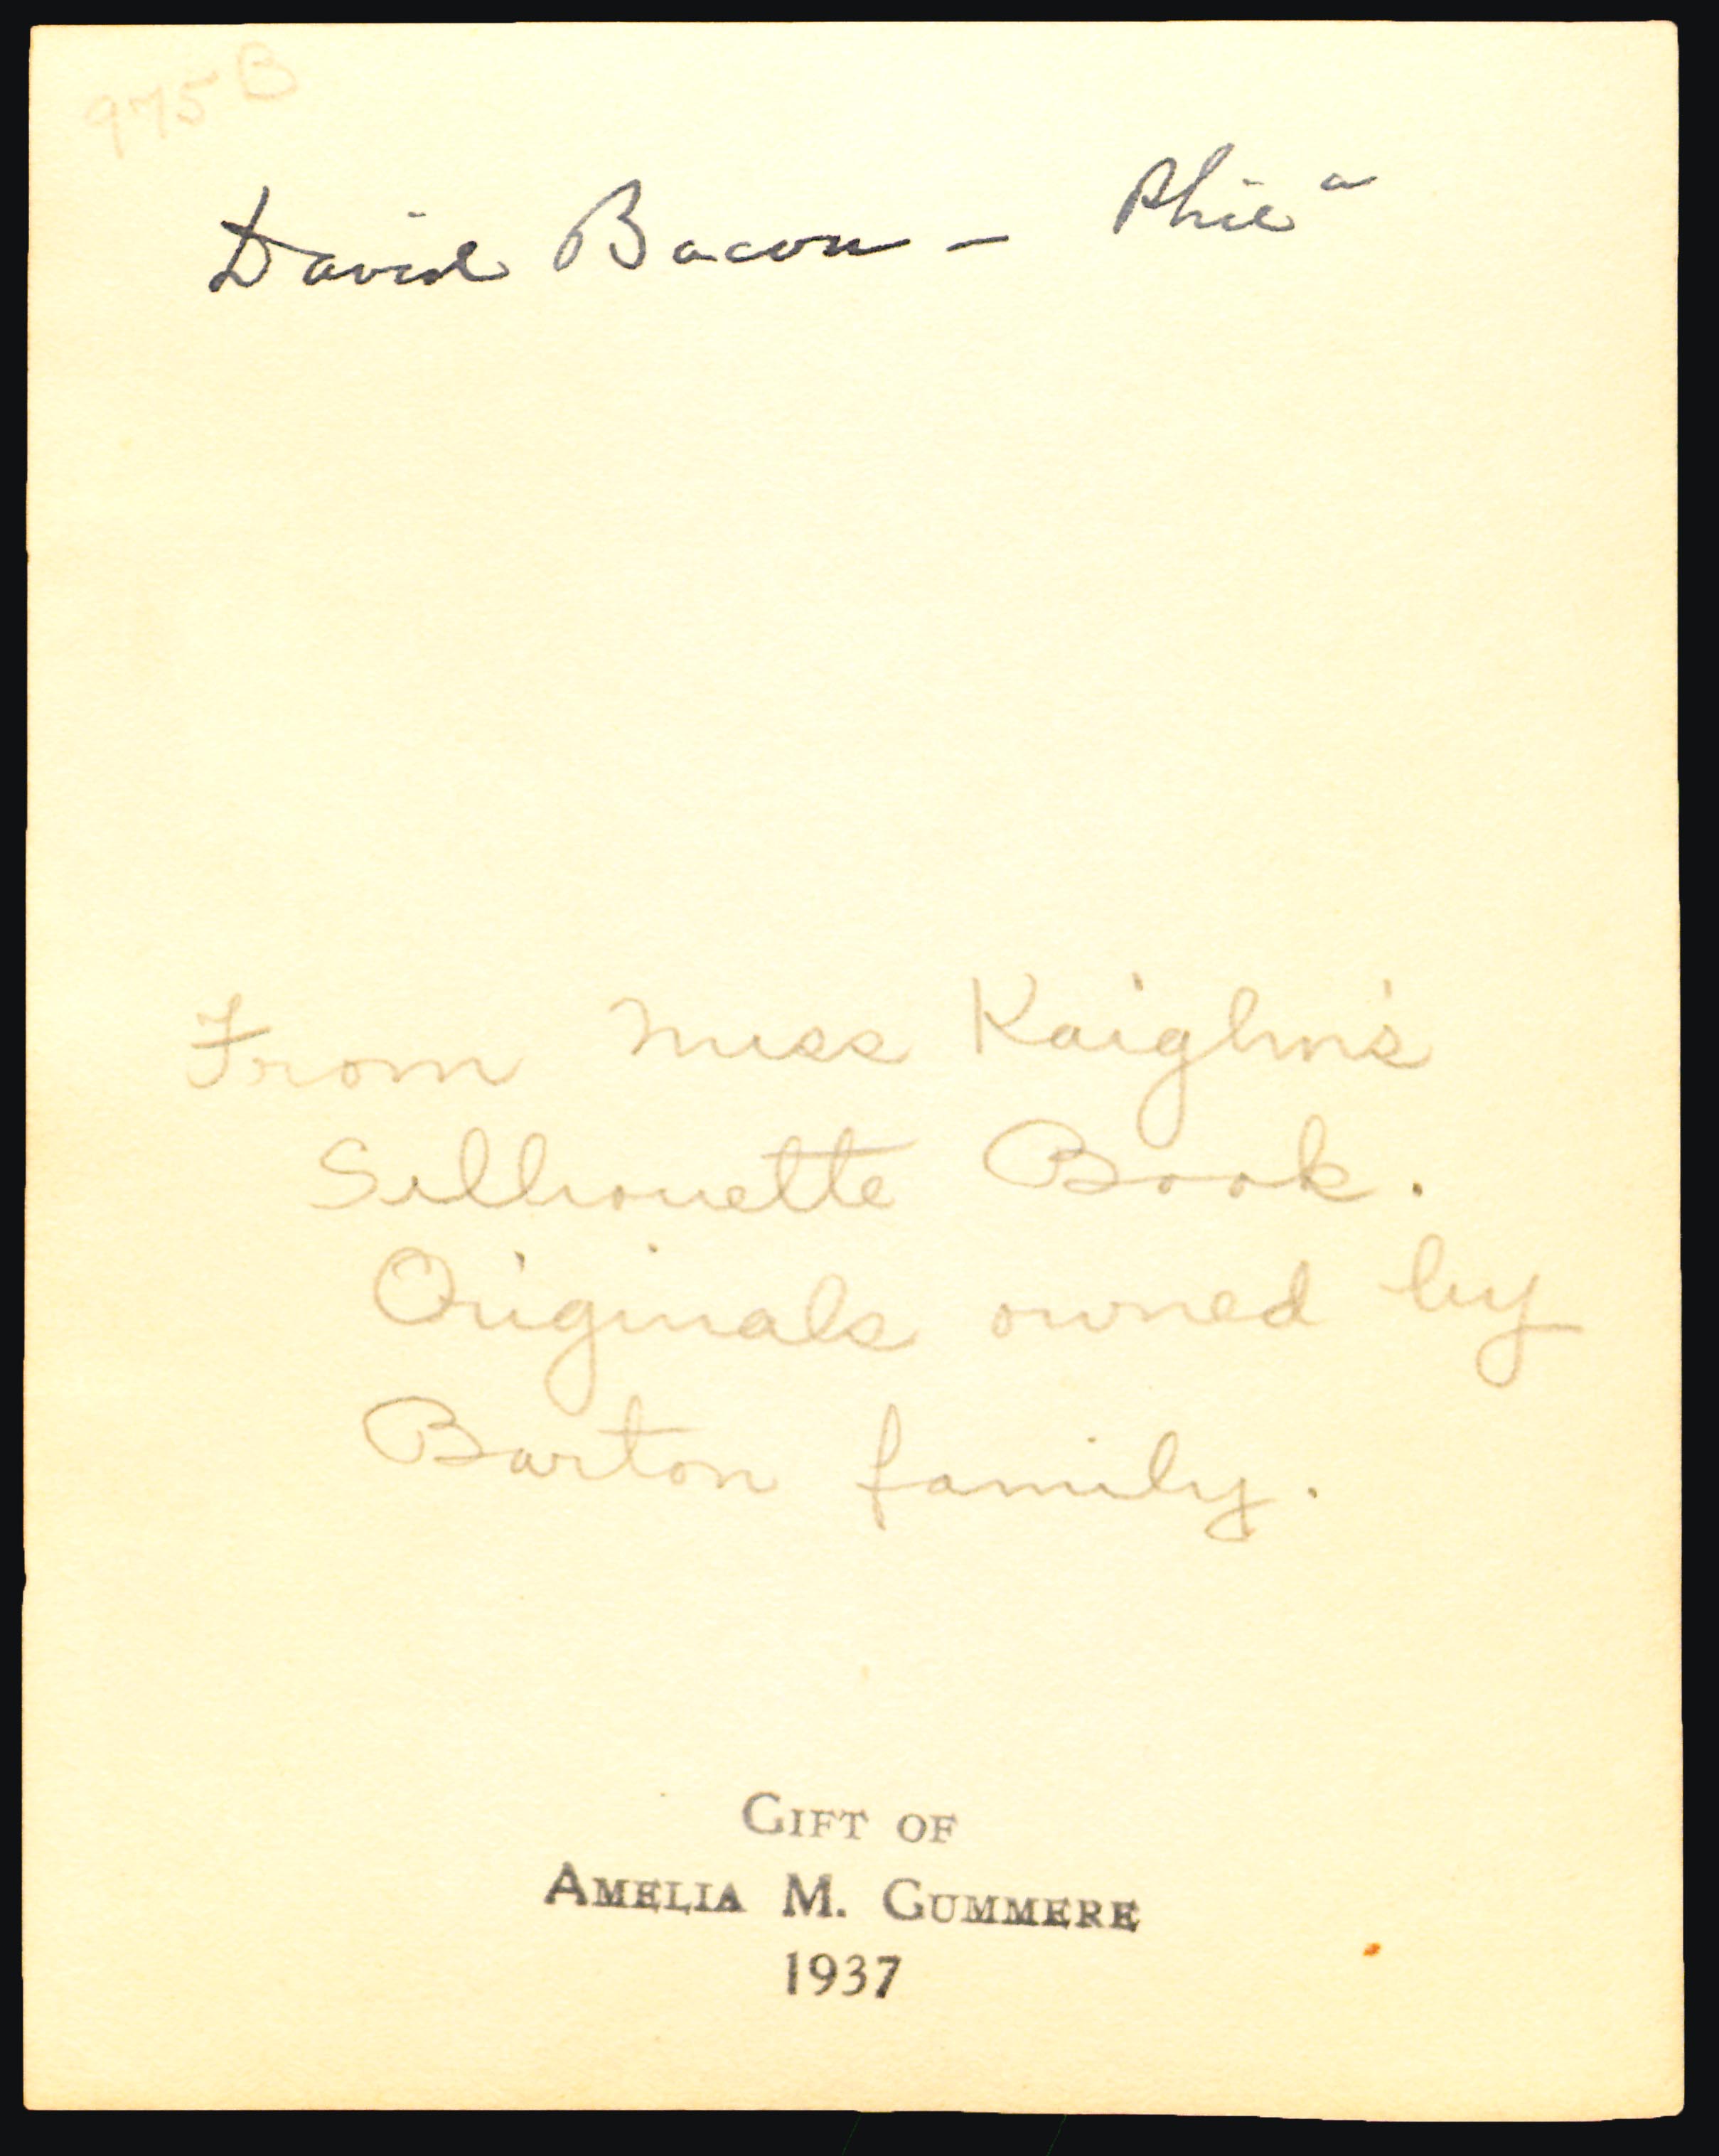 975 B
David Bacon — Phil a
From Miss Kaighn's
Silhouette Book.
Originals owned by
Barton family.
GIFT OF
AMELIA M. GUMMERE
1937